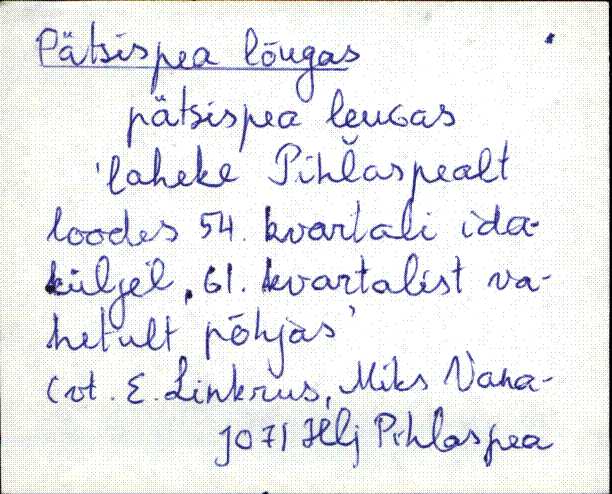 Pätsispea lõugas
pätsispea leuGas
'laheke Pihlaspealt
loodes 54. kvartali ida-
küljel, 61. kvartalist va-
hetult põhjas'
(vt. E. Linkrus, Miks Vana-
1071 Hlj Pihlaspea